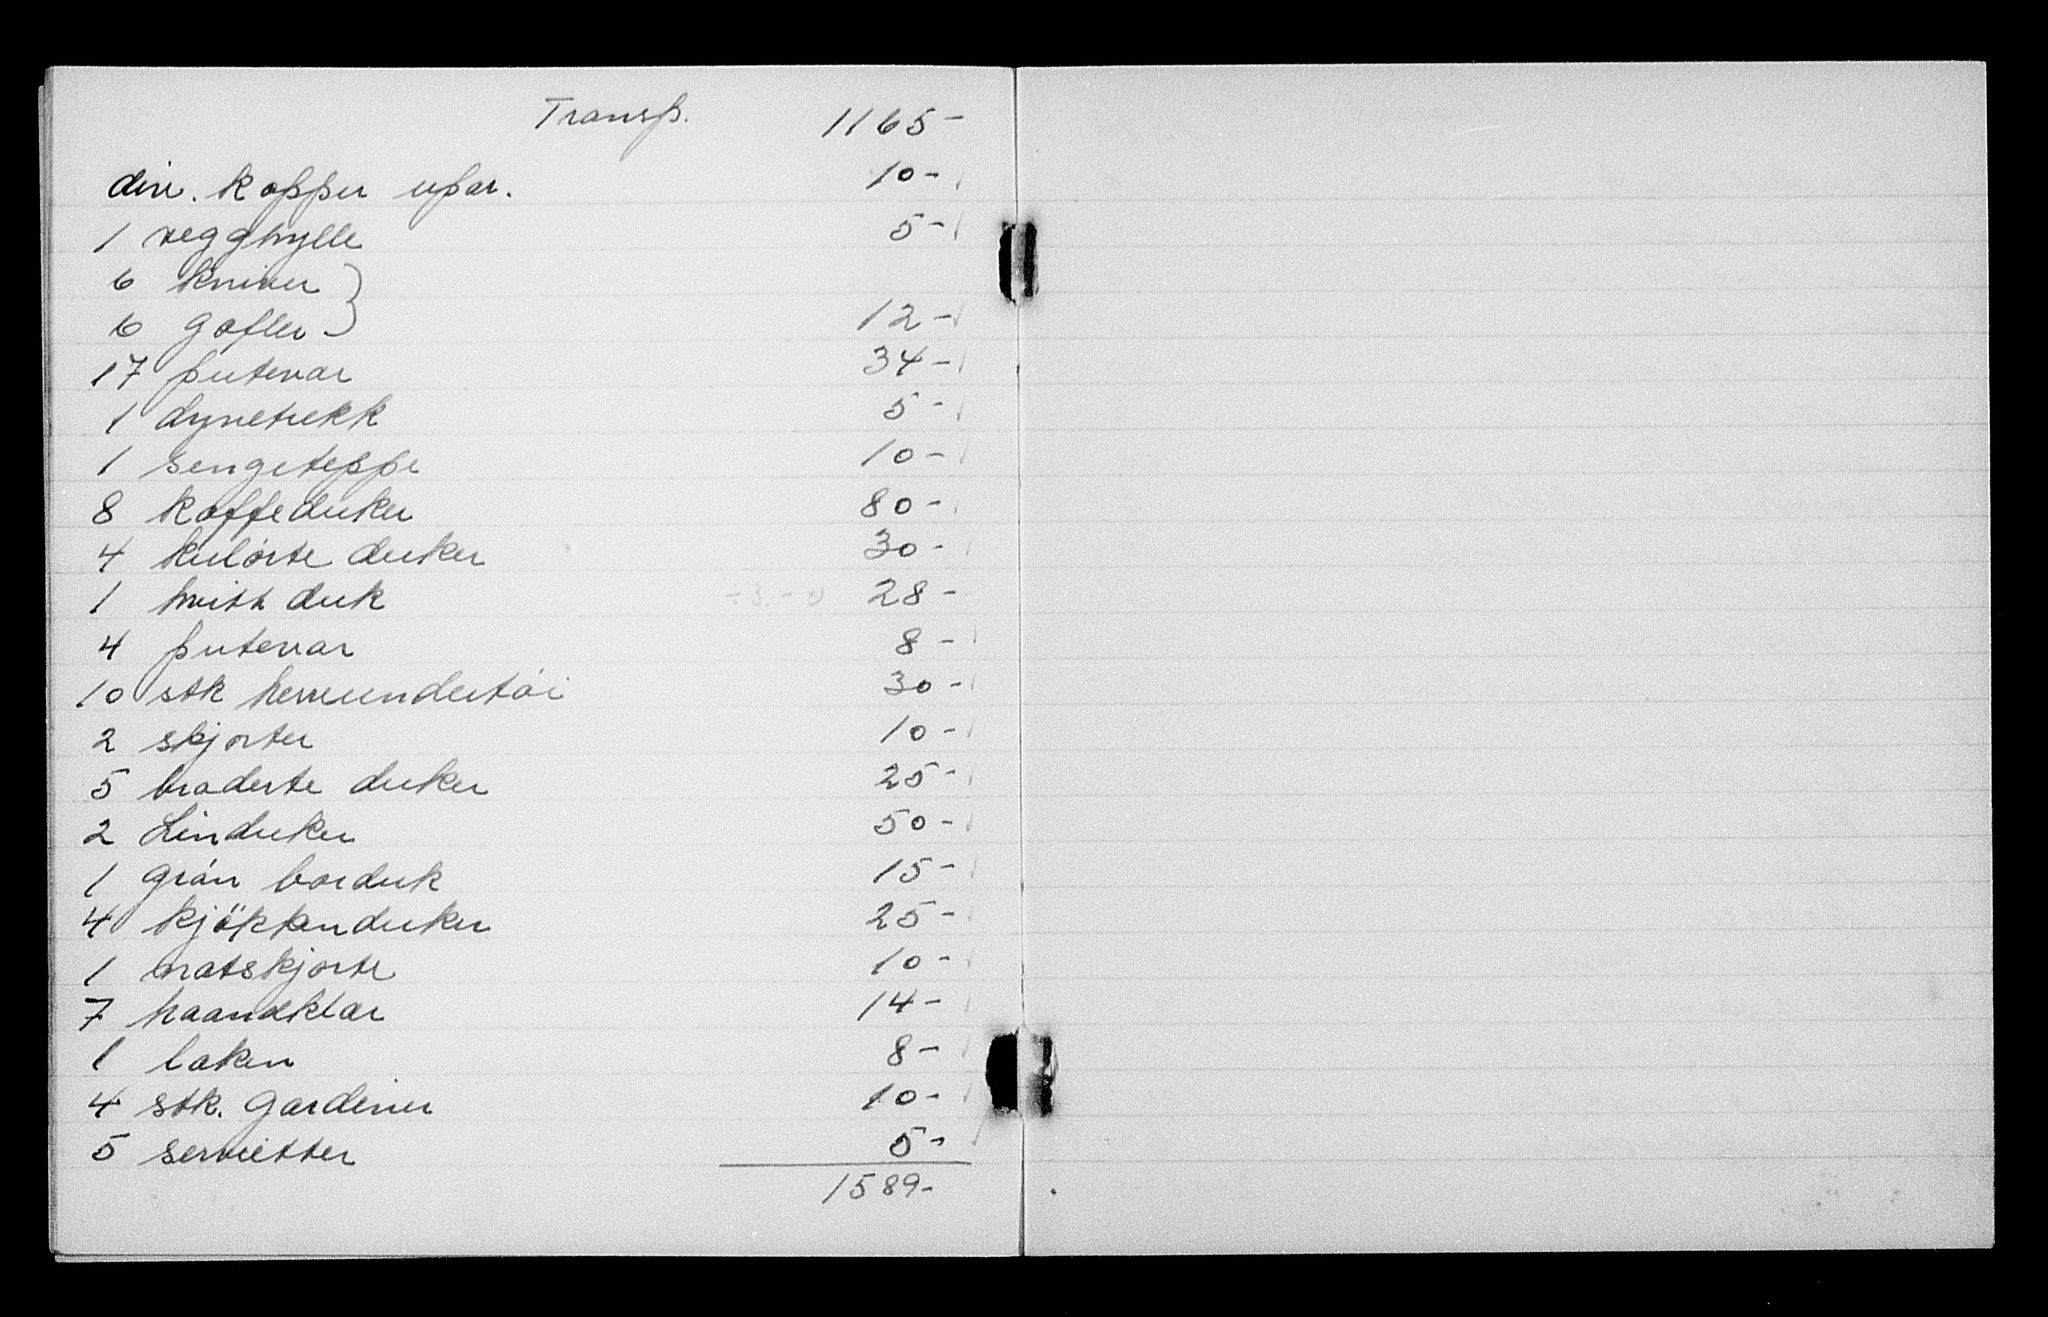 Transp. 1165-
div. kopper upar. 10-
1 vegghylle 5-
6 kniver }
6 gafler } 12-
17 putevar 34-
1 dynetrekk 5-
1 sengeteppe 10-
8 kaffeduker 80-
4 kulørte duker 30-
1 hvitt duk 28-
4 putevar 8-
10 stk herreundertøi 30-
2 skjorter 10-
5 broderte duker 25-
2 Linduker 50-
1 grøn borduk 15-
4 kjökkenduker 25-
1 natskjorte 10-
7 haandklær 14-
1 laken 8-
4 stk. gardiner 10-
5 servietter 5-
1589-